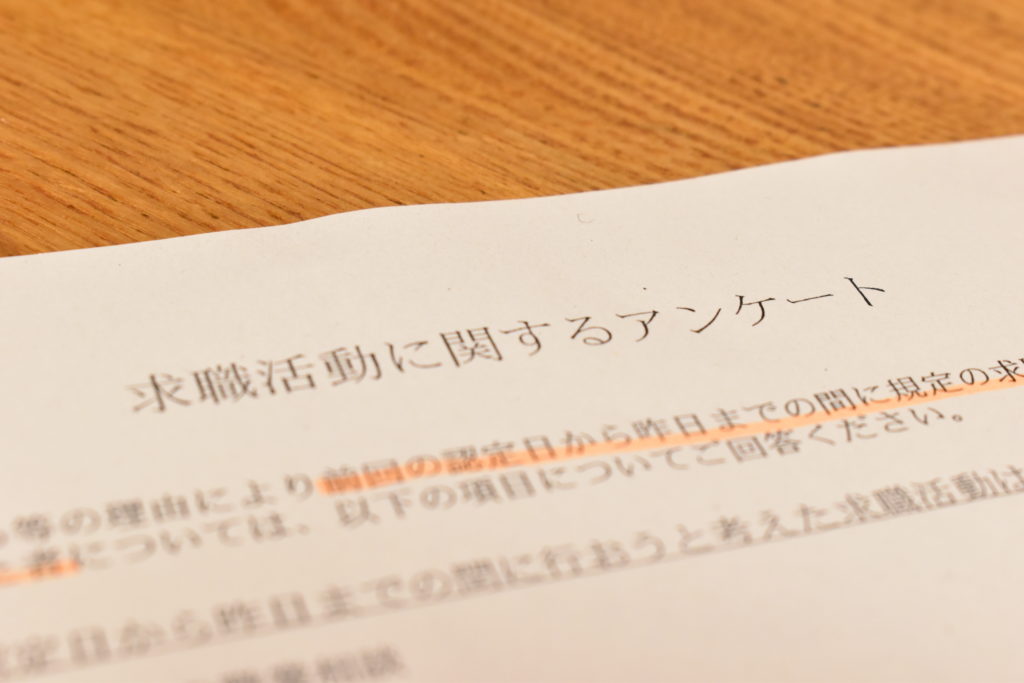 求職活動に関するアンケート
等の理由により前回の認定日から昨日までの間に規定の求
者については、以下の項目についてご回答ください。
定日から昨日までの間に行おうと考えた求職活動は
職業相談